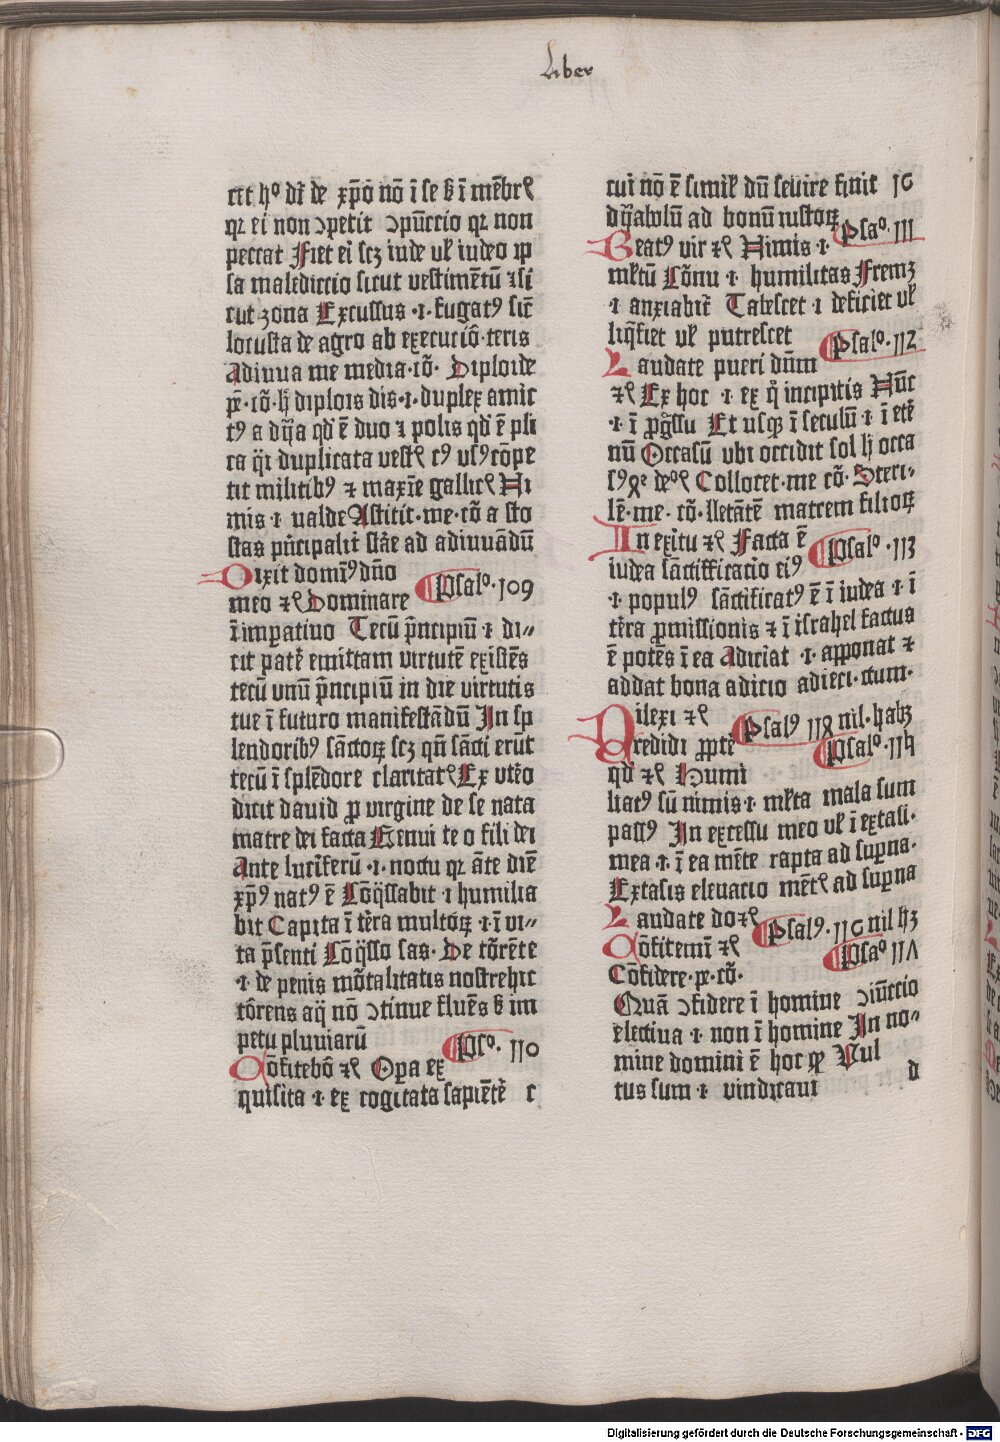 Liber
cit hº dr̄ de xp̄o nō ī se ẞ ī mēbrꝭ
qꝛ ei non ↄpetit ↄpūccio qꝛ non
peccat Fiet ei scꝫ iude vl̓ iudeo ip
sa malediccio sicut vestimētū ⁊ si
cut zona Excussus ·i· fugatꝰ sic̄
locusta de agro ab execuciō·teris
Adiuua me media·cō· Diploide
p̲·cō·hͥ diplois dis·i·duplex amic
tꝰ a dya qd̓ ē duo ⁊ polis qd̓ ē pli
ca q̄i duplicata vestꝭ cꝰ vsꝰ cōpe
tit militibꝰ ⁊ maxīe gallicꝭ Ni
mis ·i· valde Astitit·me·cō a sto
stas pn̄cipalit̓ stāe ad adiuuādū
Dixit domīꝰ dn̄o
meo ⁊ꝭ Dominare
Psalº·109
īimpatiuo Tecū p̄ncipiū ·i· di〃
cit pat̓ emittam virtutē existēs
tecū vnū p̄ncipiū in die virtutis
tue ī futuro manifestādū In sp
lendoribꝰ sāctoꝝ scꝫ qn̄ sācti erūt
tecū ī splēdore claritatꝭ Ex vt̓o
dicit dauid ꝓ virgine de se nata
matre dei facta Genui te o fili dei
Ante lucif̓erū ·i· noctu qꝛ āte diē
xp̄ꝰ natꝰ ē Cōq̄ssabit ·i· humilia
bit Capita ī t̓ra multoꝝ ·i· ī vi〃
ta p̄senti Cōq̄sso sas· De tōrēte
·i· de penis mōtalitatis nostre hic
tōrens aq̄ nō ↄtinue fluēs ẞ im
petu pluuiarū
Psº· 110
Cōfitebō ⁊ꝭ Opa ex
quisita ·i· ex cogitata sapiēt̓ c
cui nō ē simil̓ dū seuire finit 16
dyabolū ad bonū iustoꝝ
Psaº·111
Beatꝰ vir ⁊ꝭ Nimis ·i·
ml̓tū Cōnu ·i· humilitas Fremꝫ
·i· anxiabit̓ Tabescet ·i· deficiet vl̓
liq̄fiet vl̓ putrescet
Psalº·112
Laudate pueri dn̄m
⁊ꝭ Ex hoc ·i· ex q̊ incipitis Nūc
·i· ī ꝓg̓ssu Et usqꝫ ī seculū ·i· ī et̓
nū Occasū vbi occidit sol hͥ occa
Collocet·me cō· Steri-
lē·me· cō·lletātē matrem filioꝝ
In exitu ⁊ꝭ Facta ē
Psalº·113
iudea sāctifficacio eiꝰ
·i· populꝰ sāctificatꝰ ē ī iudea ·i· ī
t̓ra ꝓmissionis ⁊ ī israhel factus
ē potēs ī ea Adiciat ·i· apponat ⁊
addat bona adicio adieci·ctum·
Dilexi ⁊ꝭ
Psalꝰ 114 nil·habꝫ
Credidi ꝓpt̓
Psalº·115
qd̓ ⁊ꝭ Humi
liatꝰ sū nimis ·i· ml̓ta mala sum
passꝰ In excessu meo vl̓ ī extasi·
mea ·i· ī ea mēte rapta ad supna·
Extasis eleuacio mētꝭ ad supna
Laudate do ⁊ꝭ
Psalꝰ·116 nil hꝫ
Cōfitemī ⁊ꝭ
Psaº 117
Cōfidere·p̲·cō·
Quā ↄfidere ī homine ↄiūctio
electiua ·i· non ī homine In no〃
mine domini ē hoc qꝫ Vul
tus sum ·i· vindicaui d
Digitalisierung gefördert durch die Deutsche Forschungsgemeinschaft - DFG